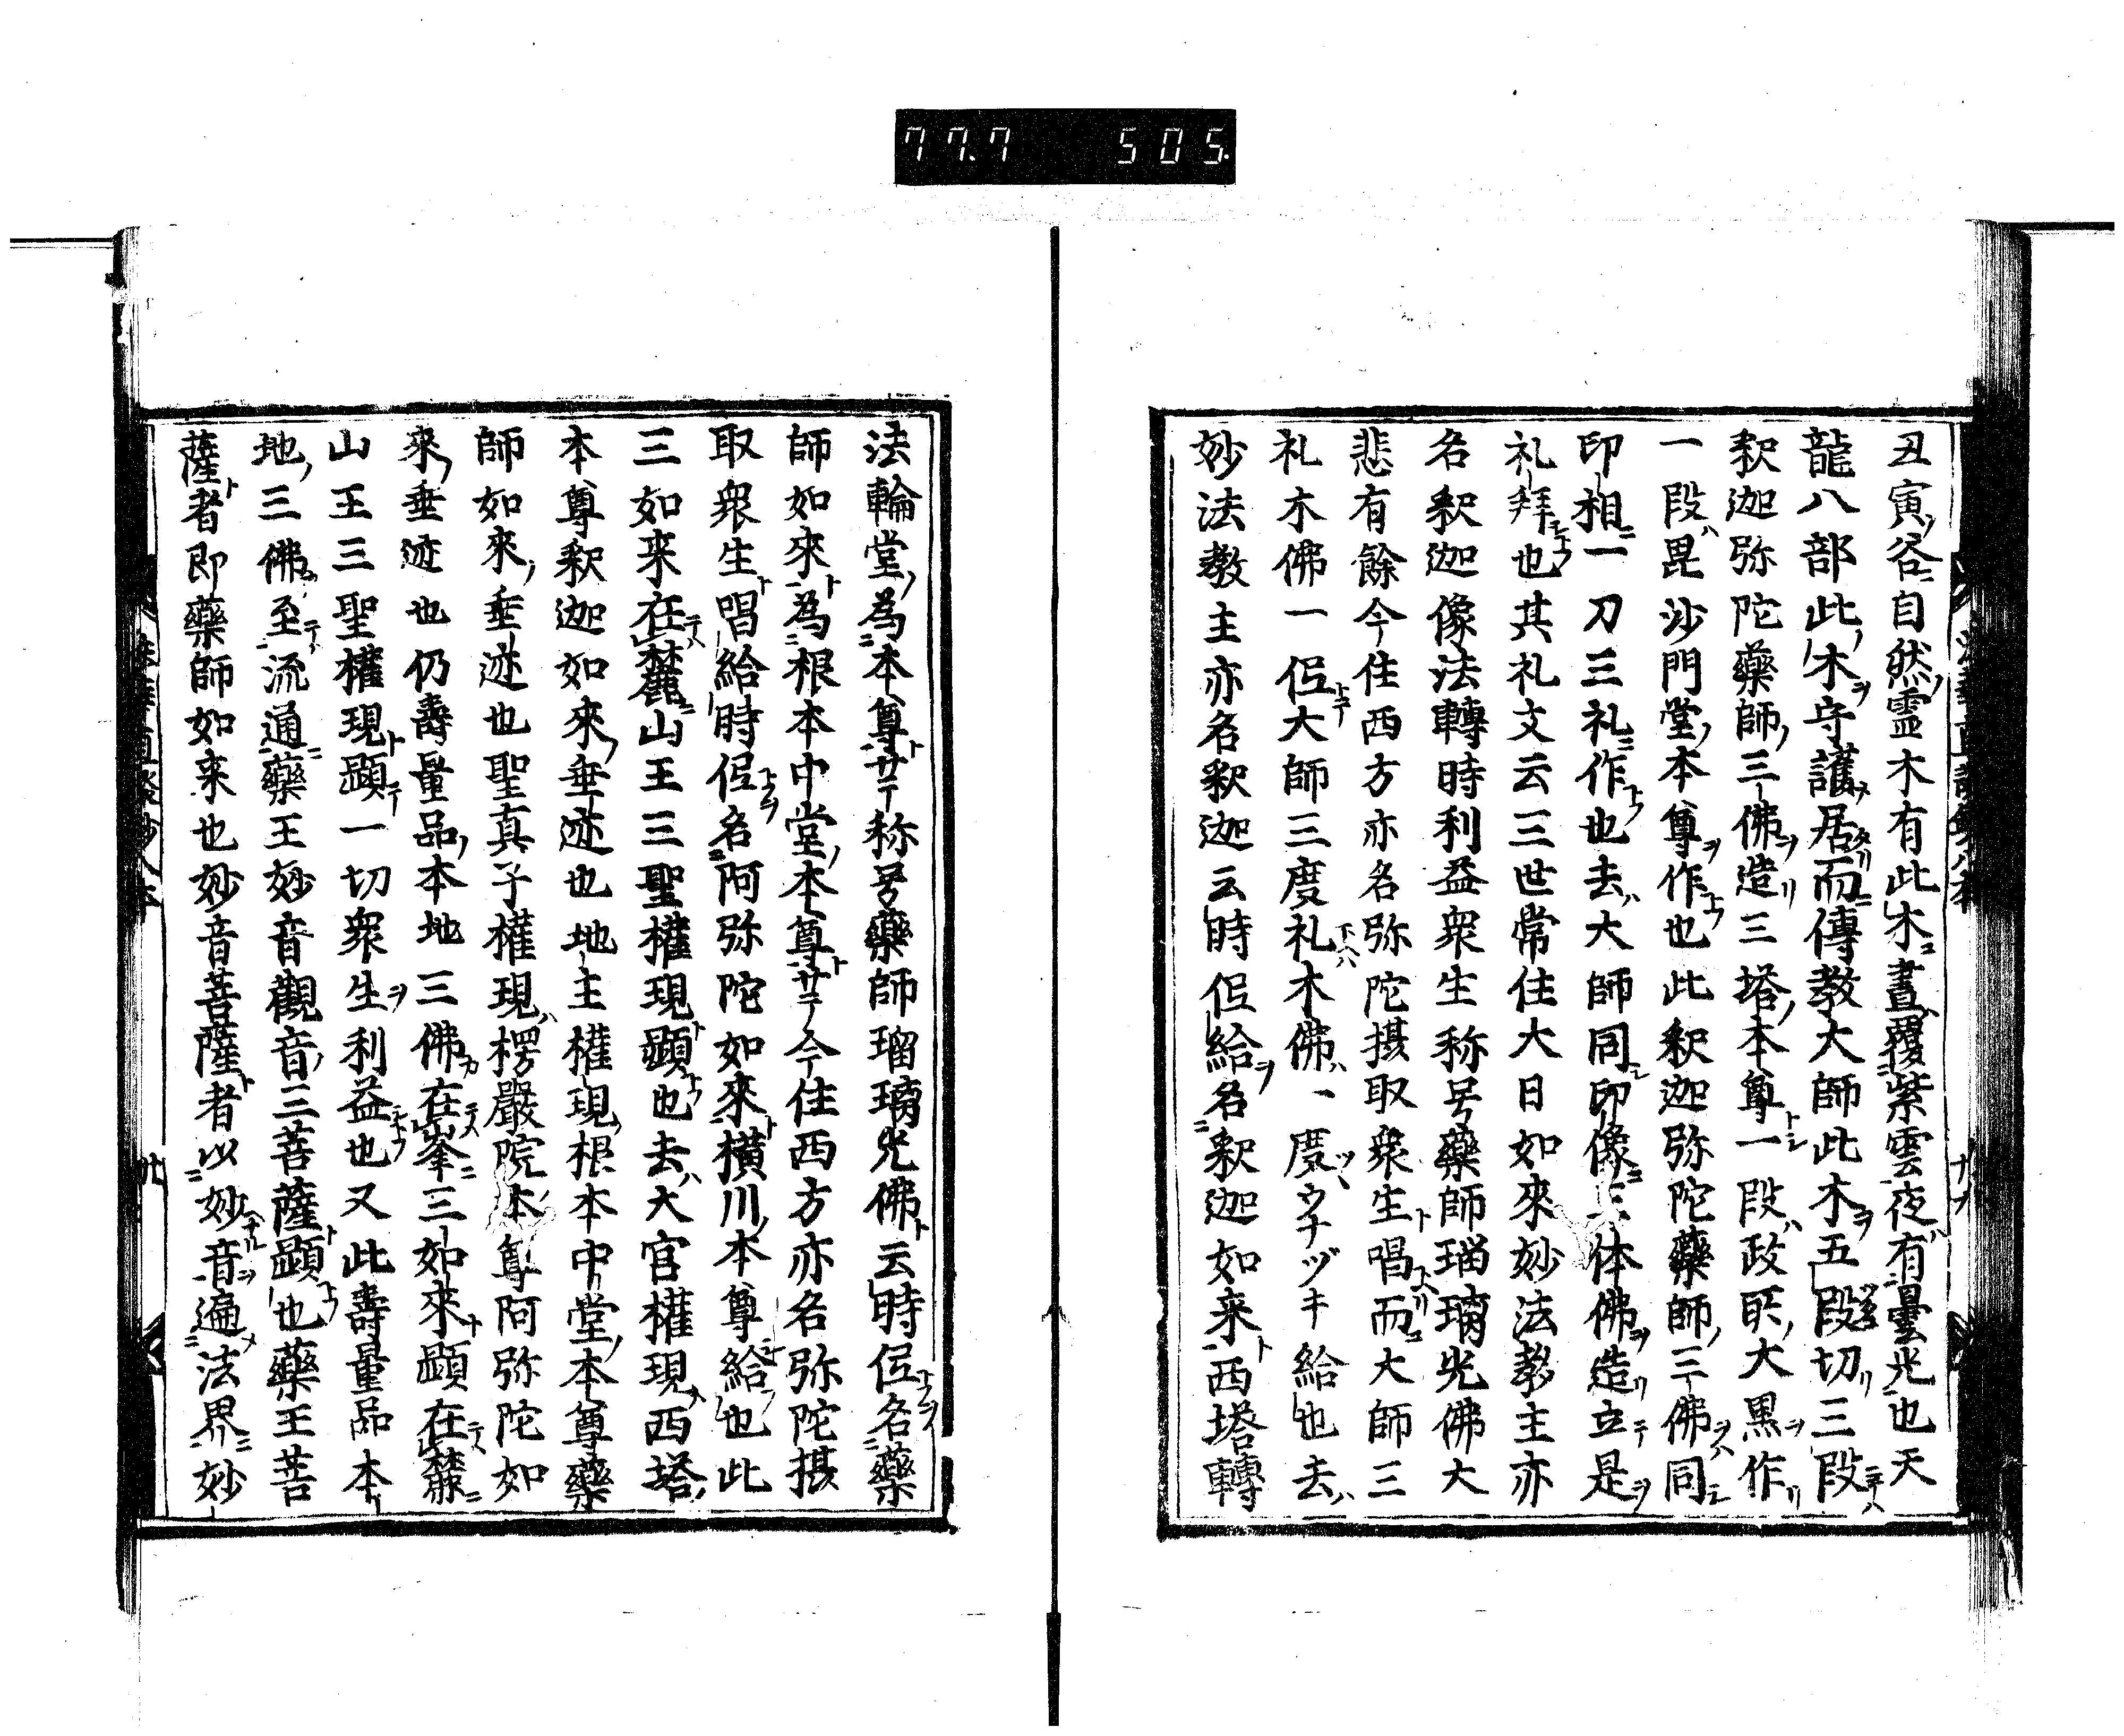 77.7 505.
丑寅ノ谷ニ自然ノ霊木有此木ニ晝ハ覆紫雲夜ハ有曇光也天
龍八部此ノ木ヲ守護居而傳教大師此木ヲ五段切リ三段ニテハ
釈迦弥陀薬師ノ三佛ヲ造リ三塔ノ本尊トシ一段ハ政所ノ大黒ヲ作リ
一段ハ毘沙門堂ノ本尊ヲ作也此釈迦弥陀藥師ノ三佛ヲハ同シ
印相ニ一刀三礼ニ作也去ハ大師同シ印像ニ三体佛ヲ造リ立テ是ヲ
礼拜也其礼文云三世常住大日如來妙法教主亦
名釈迦像法轉時利益衆生称号藥師瑠璃光佛大
悲有餘今住西方亦名弥陀摂取衆生ト唱而大師三
礼木佛一侶大師三度礼木佛ハ一度ツヽウナヅキ給也去ハ
妙法教主亦名釈迦云時侶給名ヲ釈迦如来ト西塔轉
法輪堂ノ為本尊ト称号藥師瑠璃光佛ト云時侶名藥
師如來ト為根本中堂ノ本尊ト今住西方亦名弥陀摂
取衆生ト唱給時侶名阿弥陀如來ト横川ノ本尊給也此
三如来在麓山王三聖權現ト顕也去ハ大宮權現ハ西塔ノ
本尊釈迦如來ノ垂迹也地主權現ハ根本中堂ノ本尊藥
師如來ノ垂迹也聖真子權現ハ楞嚴院本尊阿弥陀如
來ノ垂迹也仍壽量品ノ本地三佛カ在峯三如來ト顕在麓
山王三聖權現ト顕テ一切衆生ヲ利益也又此壽量品本
地ノ三佛至流通藥王妙音觀音ノ三菩薩ト顕也藥王菩
薩ト者即藥師如来也妙音菩薩ト者以妙音ヲ遍法界ニ妙